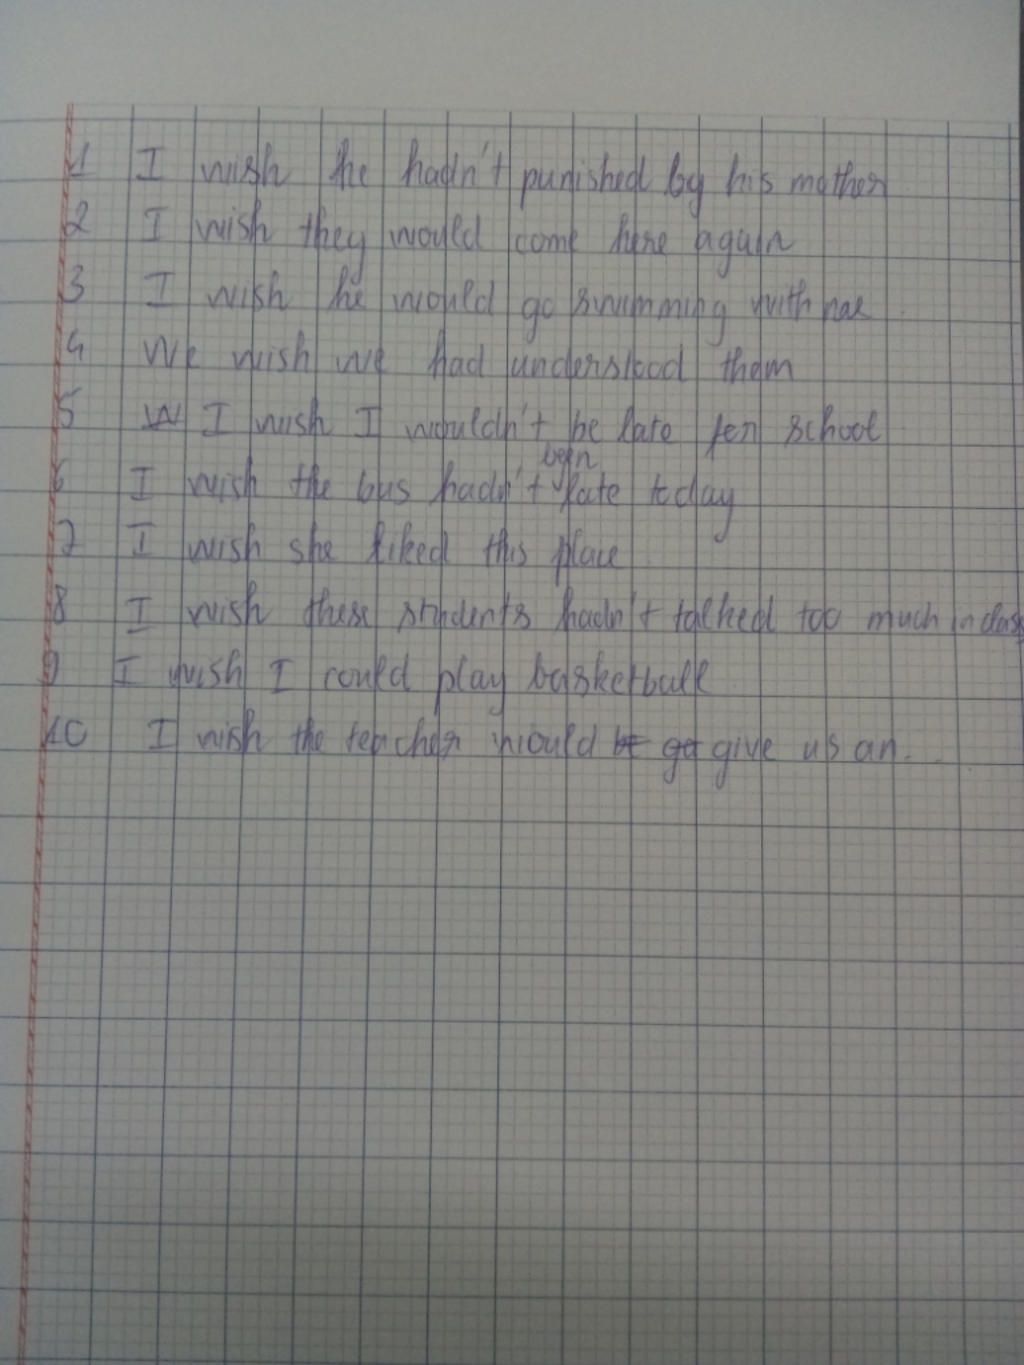 1 I wish he hadn't punished by his mother
2 I wish they would come here again
3 I wish he would go swimming with me.
4 We wish we had understood them
5 I wish I wouldn't be late for school
6 I wish the bus hadn't been late today
7 I wish she liked this place
8 I wish these students hadn't talked too much in class
9 I wish I could play basketball
10 I wish the teacher would give us an..